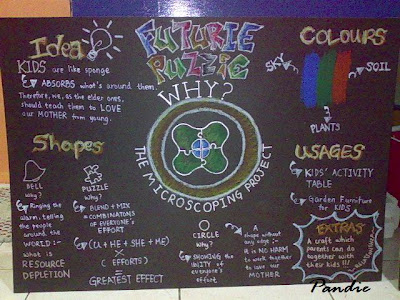 Idea
KIDS are like sponge
ABSORBS what's around them.
Therefore, we, as the elder ones,
should teach them to LOVE
our MOTHER from young.
FUTURIE
PUZZIE
WHY?
THE MICROSCOPING PROJECT
COLOURS
SKY
SOIL
PLANTS
Shapes
BELL
Why?
Ringing the
alarm, telling
the people
around the
WORLD :-
what is
RESOURCE
DEPLETION
PUZZLE
Why?
BLEND + MIX
= COMBINATIONS OF
EVERYONE'S
EFFORT
(U + HE + SHE + ME)
X
( EFFORTS )
=
GREATEST EFFECT
CIRCLE
Why?
SHOWING the
UNITY of
everyone's
effort.
A
shape without
any edge :-
it is NO HARM
to work together
to save our
MOTHER
USAGES
KIDS' ACTIVITY
TABLE
Garden Furniture
for KIDS
EXTRAS
A craft which
parents can do
together with
their kids !!!
Pandie